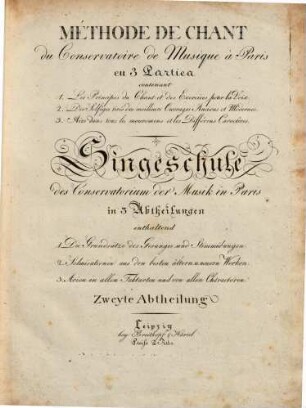 MÉTHODE DE CHANT
du Conservatoire de Musique à Paris
en 3 Parties
contenant
1. Les Principes du Chant et des Exercices pour la Voix.
2. Des Solfèges tirés des meilleurs Ouvrages Anciens et Modernes.
3. Airs dans tous les mouvemens et les Différens Caractères.
Singeschule
des Conservatorium der Musik in Paris
in 3 Abtheilungen
enthaltend
1. Die Grundsätze des Gesanges und Stimmübungen
2. Solmisationen aus den besten ältern u. neuern Werken.
3. Arien in allen Taktarten und von allen Characteren.
Zweyte Abtheilung
Leipzig
bey Breitkopf & Härtel
Preis 2